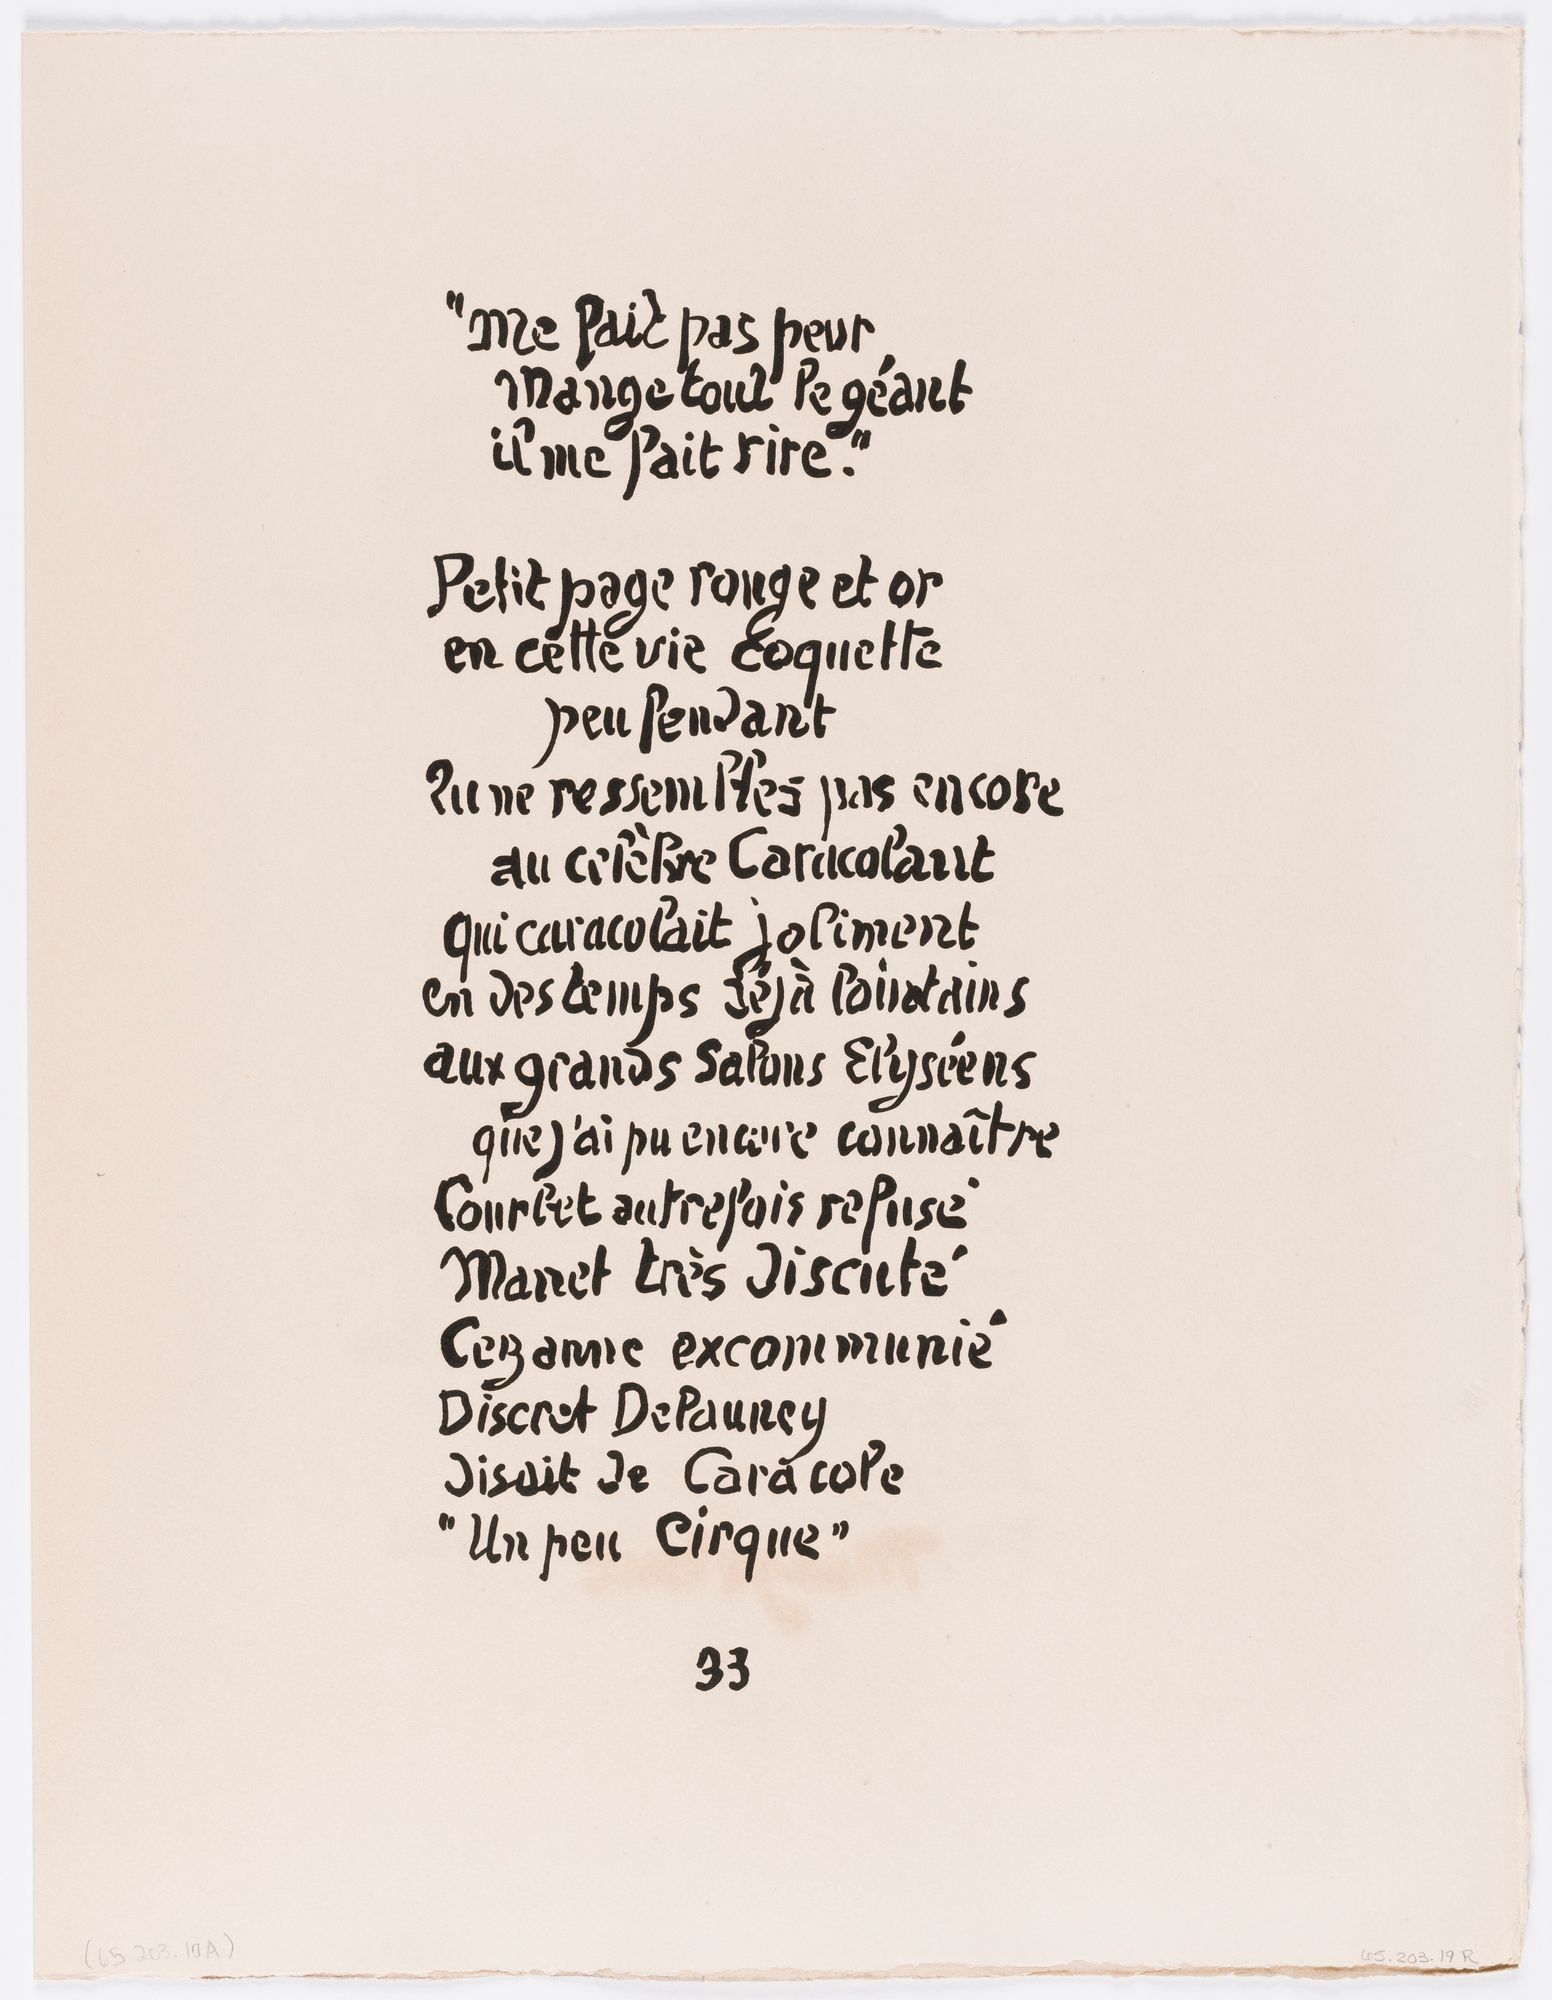 "Me fait pas peur
Mangetout le géant
il me fait rire."
Petit page rouge et or
en cette vie Coquette
peu fendant
Tu ne ressembles pas encore
au célèbre Caracolant
qui caracolait joliment
en des temps déjà lointains
aux grands Salons Elyséens
que j'ai pu encore connaître
Courbet autrefois refusé
Manet très discuté
Cezanne excommunié
Discret Delauney
disait de Caracole
"Un peu Cirque"
33
(65.203.17A)
65.203.19 R